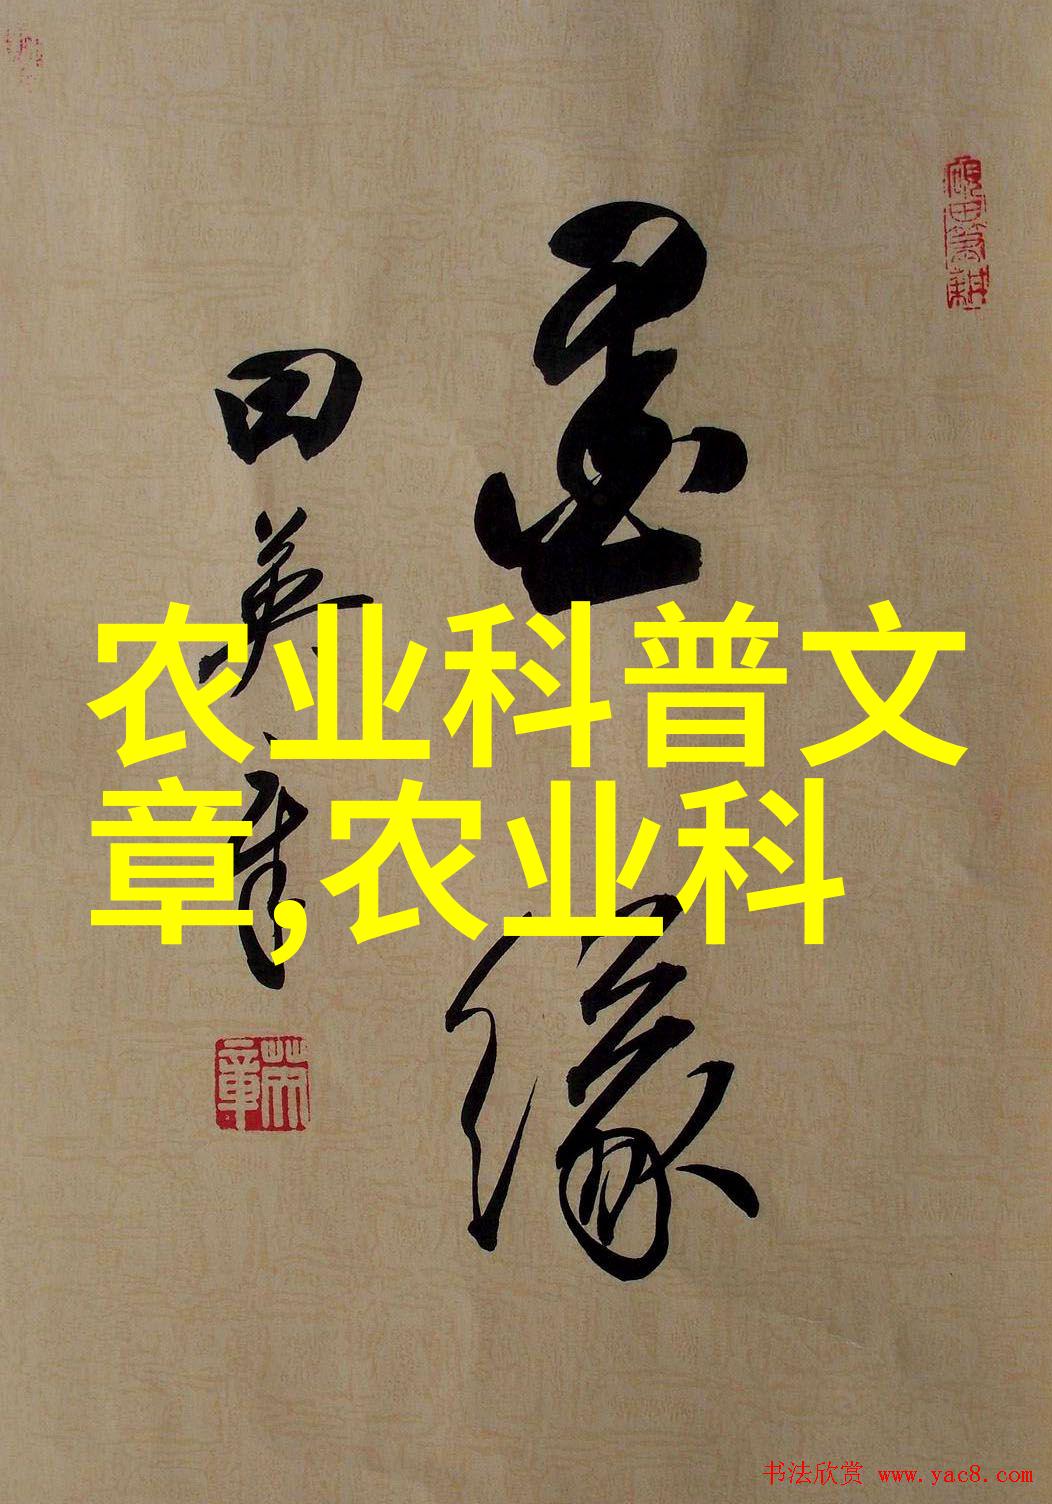 墨缘
田英章
农业科普文
章,农业科
书法欣赏 www.yac8.com